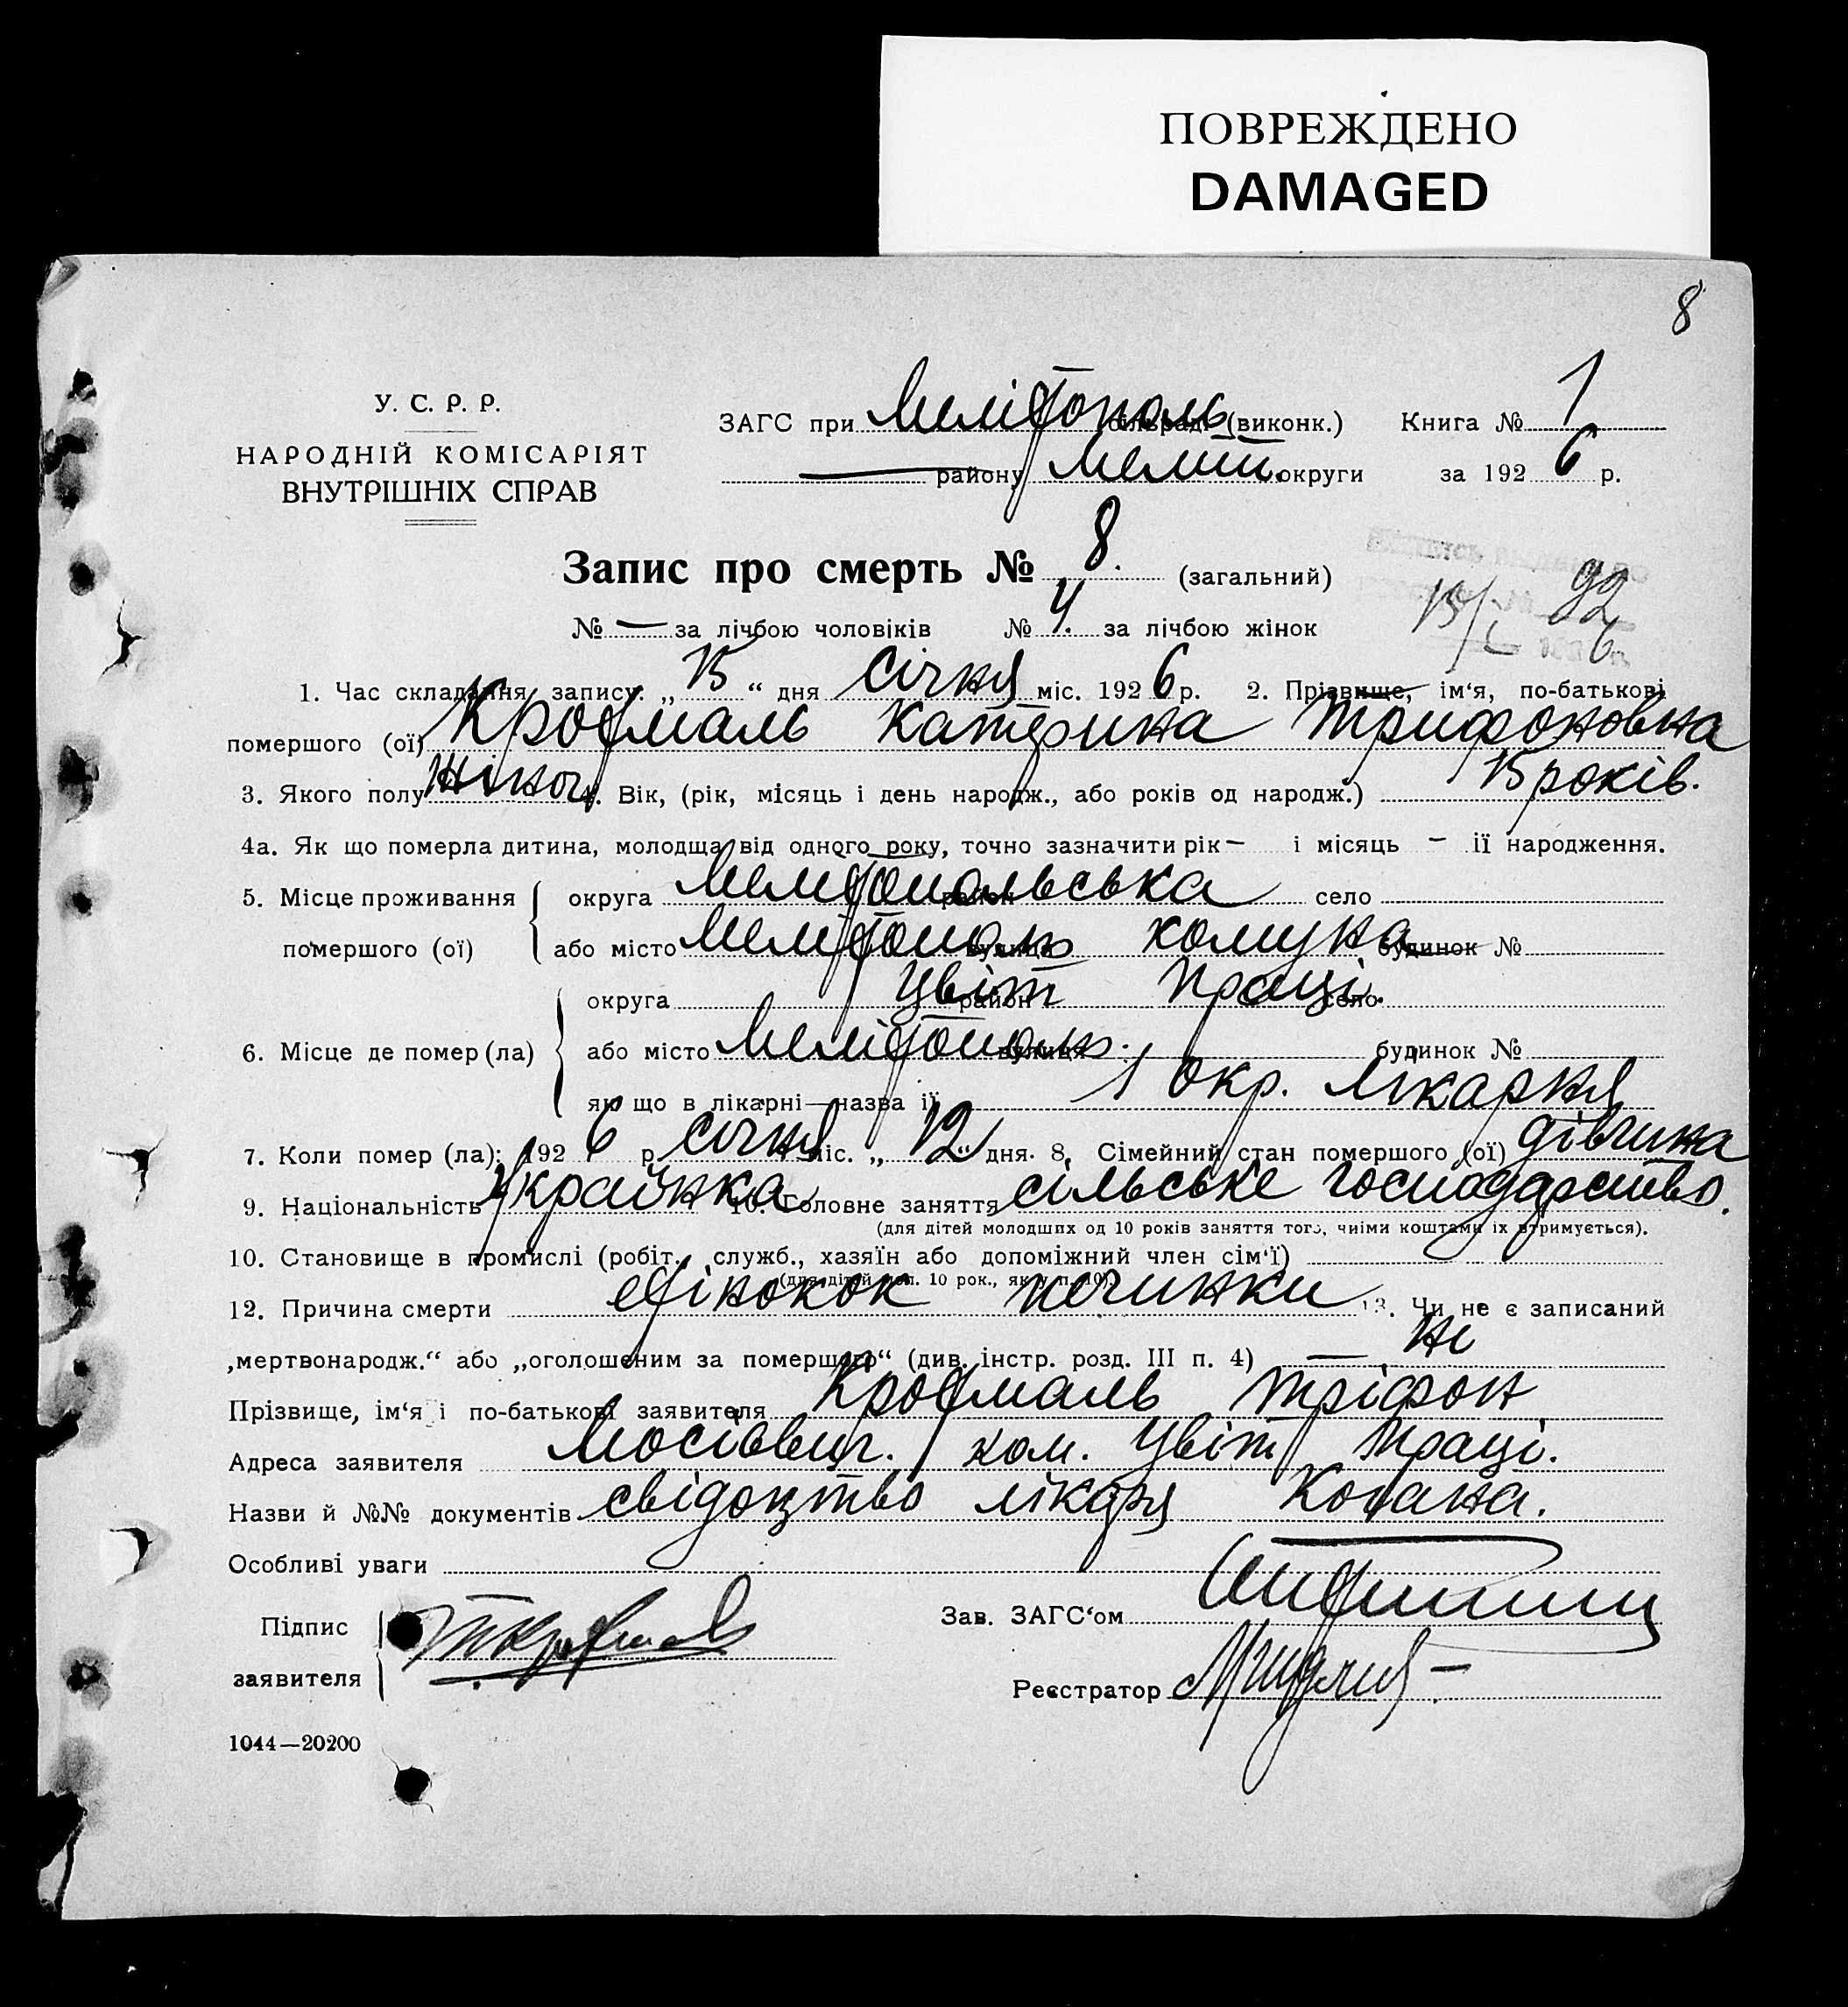 ПОВРЕЖДЕНО
DAMAGED
8
У. С. Р. Р.
НАРОДНІЙ КОМІСАРІЯТ
ВНУТРІШНІХ СПРАВ
ЗАГС при Мелітополь сільраді (виконк.) Книга № 1
— району Меліт. округи за 1926 р.
Запис про смерть № 8. (загальний)
№ — за лічбою чоловіків № 4. за лічбою жінок
15/I 92
6
1. Час складання запису: „15“ дня Січня міс. 1926 р. 2. Прізвище, ім‘я, по-батькові
помершого (ої) Крохмаль Катерина Трифоновна
3. Якого полу жіноч. 4. Вік, (рік, місяць і день народж., або років од народж.) 15 років.
4а. Як що померла дитина, молодща від одного року, точно зазначити рік – і місяць – її народження.
5. Місце проживання округа Мелітопольська район село
помершого (ої) або місто Мелітополь вулиця комуна будинок №
Цвіт Праці.
округа район село
6. Місце де помер (ла) або місто Мелітополь. вулиця будинок №
як що в лікарні—назва її 1 Окр. лікарня
7. Коли помер (ла): 1926 р. Січня міс. „12“ дня. 8. Сімейний стан помершого (ої) дівчина
9. Національність Українка 10. Головне заняття сільське господарство.
(для дітей молодших од 10 років заняття того, чиїми коштами їх втримується).
10. Становище в промислі (робіт., служб., хазяїн або допоміжний член сім‘ї)
(для дітей мол. 10 рок., як у п. 10).
12. Причина смерти ехінокок печинки 13. Чи не є записаний
„мертвонародж.“ або „оголошеним за померщого“ (див. інстр. розд. III п. 4) — Ні
Прізвище, ім‘я і по-батькові заявителя Крохмаль Тріфон
Адреса заявителя Мосіввич. ком. Цвіт Праці.
Назви й №№ документів свідоцтво лікаря Когана.
Особливі уваги
Підпис
заявителя
Зав. ЗАГС‘ом
Реєстратор
1044—20200